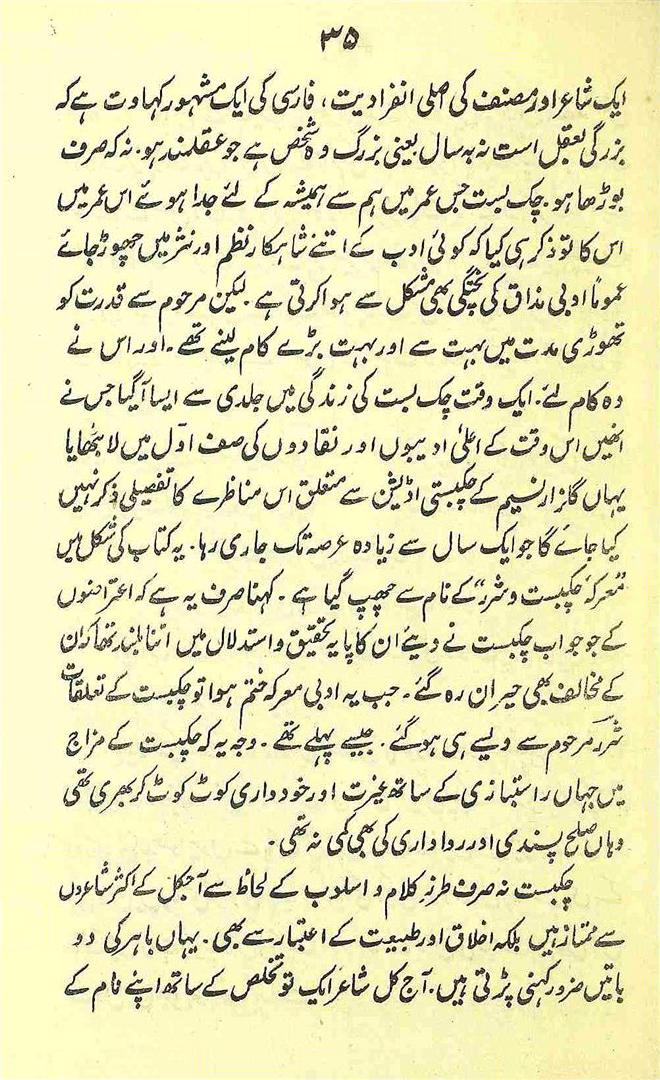 ۳۵
ایک شاعر اور مصنف کی اصلی انفرادیت، فارسی کی ایک مشہور کہاوت ہے کہ
بزرگی بعقل است نہ بہ سال یعنی بزرگ وہ شخص ہے جو عقلمند ہو۔ نہ کہ صرف
بوڑھا ہو۔ چک بست جس عمر میں ہم سے ہمیشہ کے لئے جدا ہوئے اس عمر میں
اس کا تو ذکر ہی کیا کہ کوئی ادب کے اتنے شاہکار نظم اور نثر میں چھوڑ جائے
عموماً ادبی مذاق کی پختگی بھی مشکل سے ہوا کرتی ہے۔ لیکن مرحوم سے قدرت کو
تھوڑی مدت میں بہت سے اور بہت بڑے کام لینے تھے۔ اور اس نے
وہ کام لئے۔ ایک وقت چک بست کی زندگی میں جلدی سے ایسا آگیا جس نے
انھیں اس وقت کے اعلیٰ ادیبوں اور نقادوں کی صف اوّل میں لا بٹھایا
یہاں گلزار نسیم کے چکبستی اڈیشن سے متعلق اس مناظرے کا تفصیلی ذکر نہیں
کیا جائے گا جو ایک سال سے زیادہ عرصہ تک جاری رہا۔ یہ کتاب کی شکل میں
"معرکۂ چکبست و شرر" کے نام سے چھپ گیا ہے۔ کہنا صرف یہ ہے کہ اعتراضوں
کے جو جواب چکبست نے دیئے ان کا پایہ تحقیق و استدلال میں اتنا بلند تھا کہ ان
کے مخالف بھی حیران رہ گئے۔ جب یہ ادبی معرکہ ختم ہوا تو چکبست کے تعلقات
شرر مرحوم سے ویسے ہی ہو گئے۔ جیسے پہلے تھے۔ وجہ یہ کہ چکبست کے مزاج
میں جہاں راستبازی کے ساتھ غیرت اور خودداری کوٹ کوٹ کر بھری تھی
وہاں صلح پسندی اور رواداری کی بھی کمی نہ تھی۔
چکبست نہ صرف طرز کلام و اسلوب کے لحاظ سے آجکل کے اکثر شاعروں
سے ممتاز ہیں بلکہ اخلاق اور طبیعت کے اعتبار سے بھی۔ یہاں باہر کی دو
باتیں ضرور کہنی پڑتی ہیں۔ آج کل شاعر ایک تو تخلص کے ساتھ اپنے نام کے